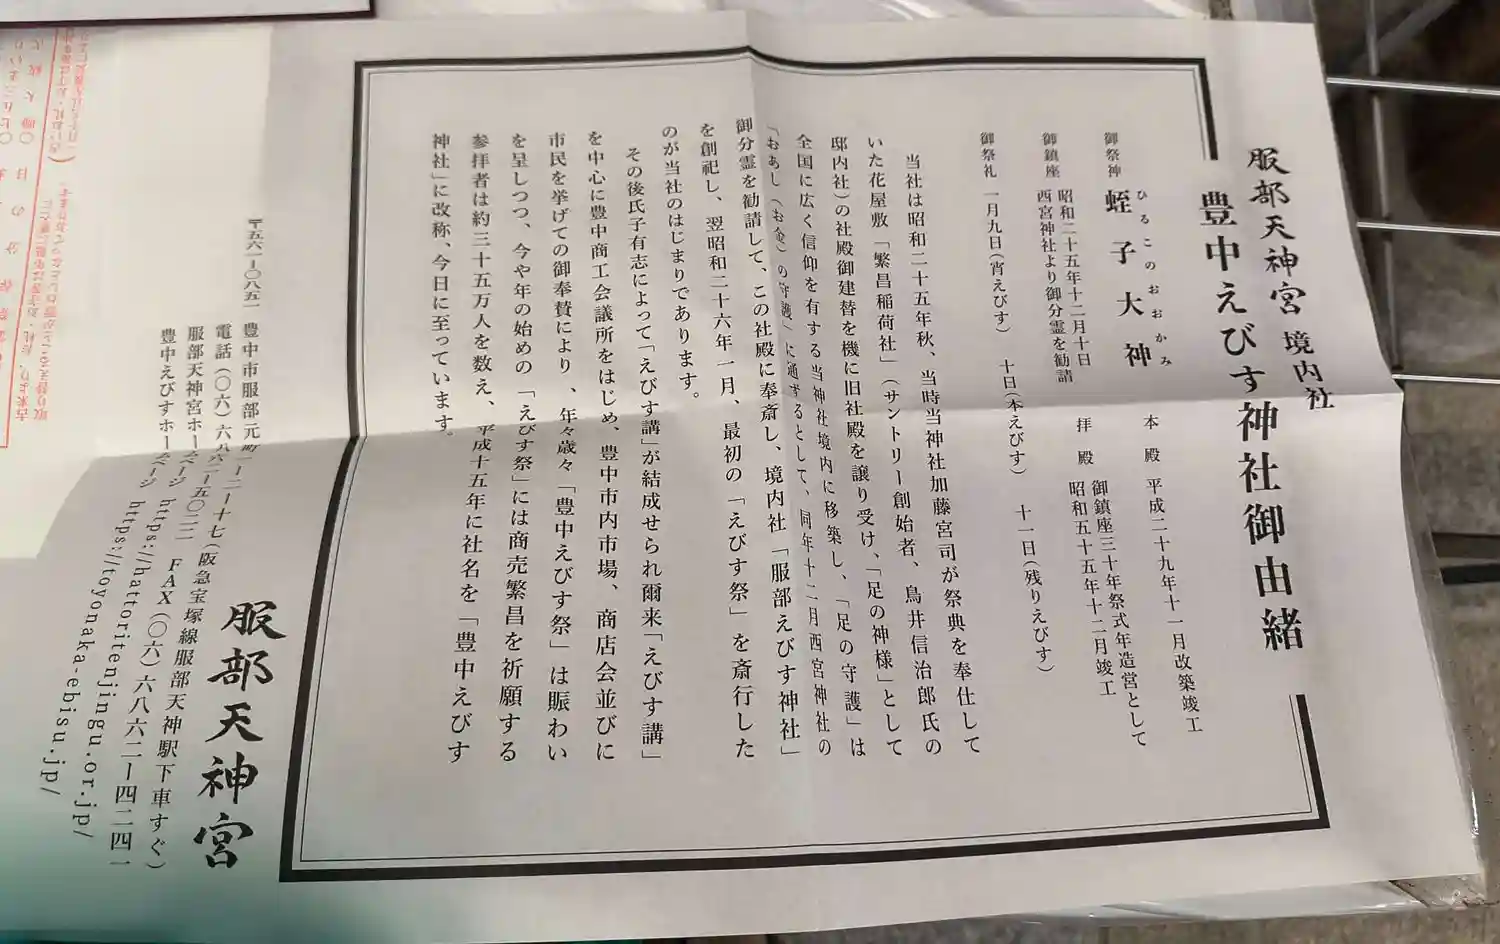 服部天神宮 境内社
豊中えびす神社御由緒
御祭神 蛭子大神
ひるこのおおかみ
御鎮座 昭和二十五年十二月十日
西宮神社より御分霊を勧請
御祭礼 一月九日(宵えびす) 十日(本えびす) 十一日(残りえびす)
本殿 平成二十九年十一月改築竣工
拝殿 御鎮座三十年祭式年造営として
昭和五十五年十二月竣工
当社は昭和二十五年秋、当時当神社加藤宮司が祭典を奉仕して
いた花屋敷「繁昌稲荷社」(サントリー創始者、鳥井信治郎氏の
邸内社)の社殿御建替を機に旧社殿を譲り受け、「足の神様」として
全国に広く信仰を有する当神社境内に移築し、「足の守護」は
「おあし(お金)の守護」に通ずるとして、同年十二月西宮神社の
御分霊を勧請して、この社殿に奉斎し、境内社「服部えびす神社」
を創祀し、翌昭和二十六年一月、最初の「えびす祭」を斎行した
のが当社のはじまりであります。
その後氏子有志によって「えびす講」が結成せられ爾来「えびす講」
を中心に豊中商工会議所をはじめ、豊中市内市場、商店会並びに
市民を挙げての御奉賛により、年々歳々「豊中えびす祭」は賑わい
を呈しつつ、今や年の始めの「えびす祭」には商売繁昌を祈願する
参拝者は約三十五万人を数え、平成十五年に社名を「豊中えびす
神社」に改称、今日に至っています。
服部天神宮
〒五六一-〇八五一 豊中市服部元町一-二-十七(阪急宝塚線服部天神駅下車すぐ)
電話(〇六)六八六二-五〇二二 FAX(〇六)六八六二-四二四一
服部天神宮ホームページ https://hattoritenjingu.or.jp/
豊中えびすホームページ https://toyonaka-ebisu.jp/